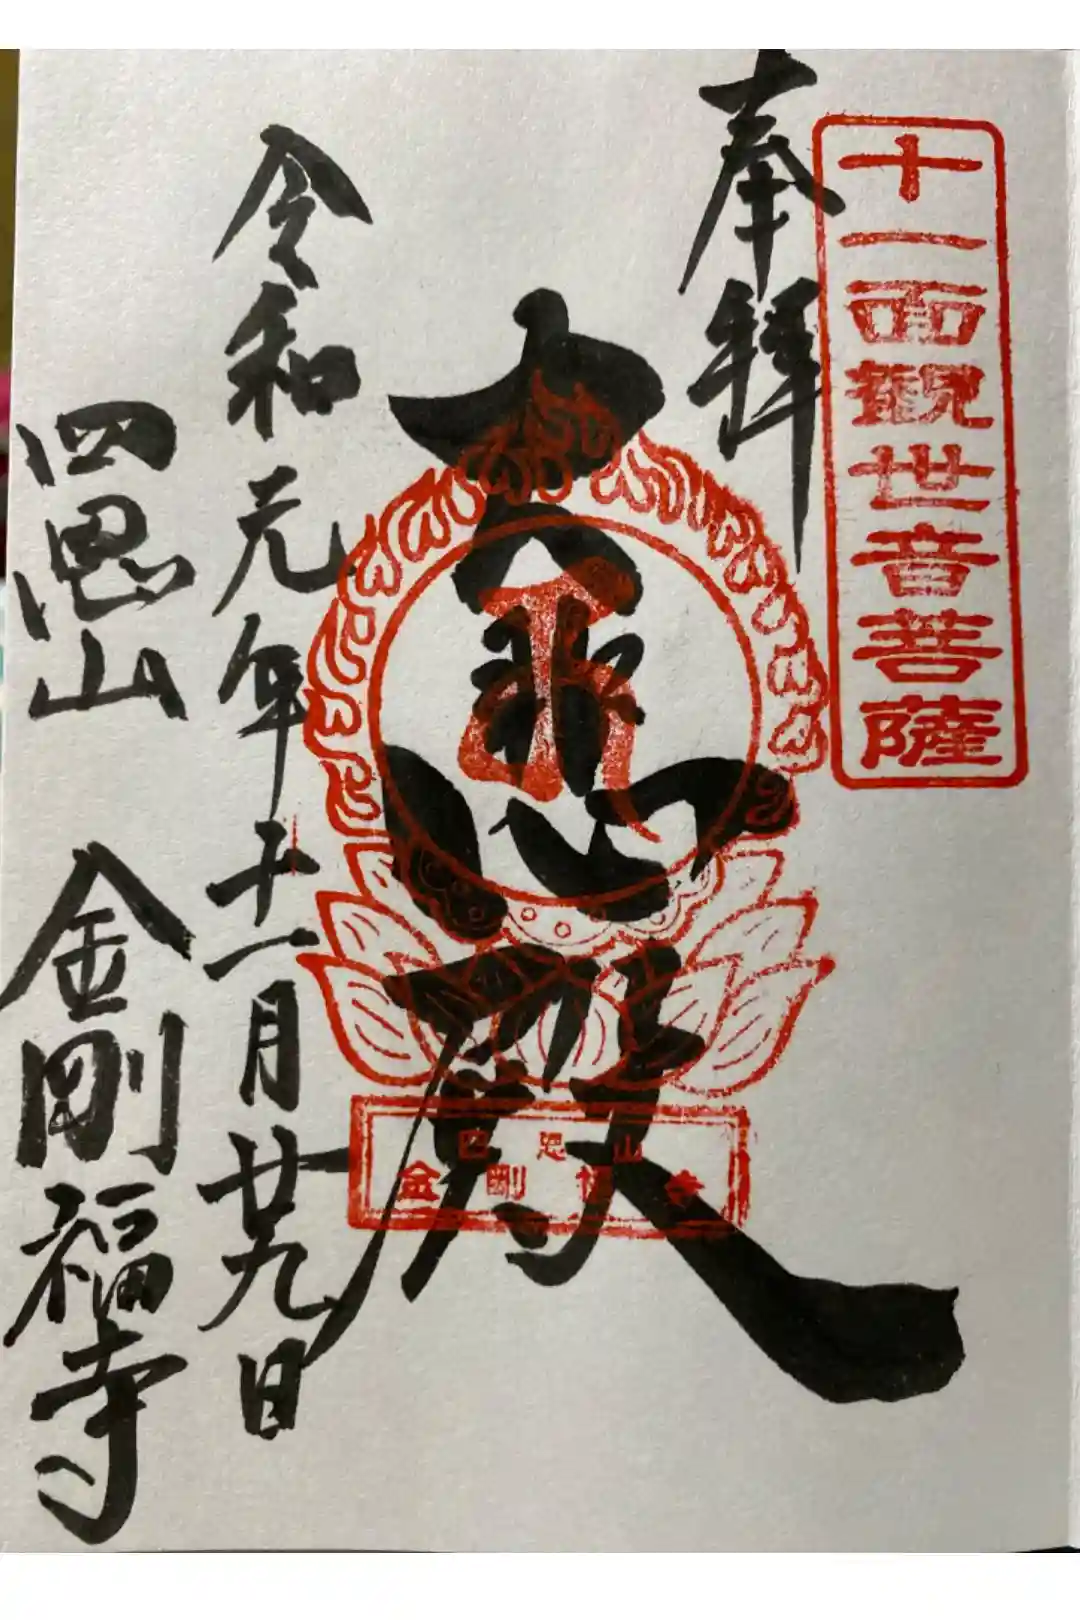 十一面観世音菩薩
奉拝
大悲殿
令和元年十一月廿九日
四恩山 金剛福寺
四恩山
金剛福寺